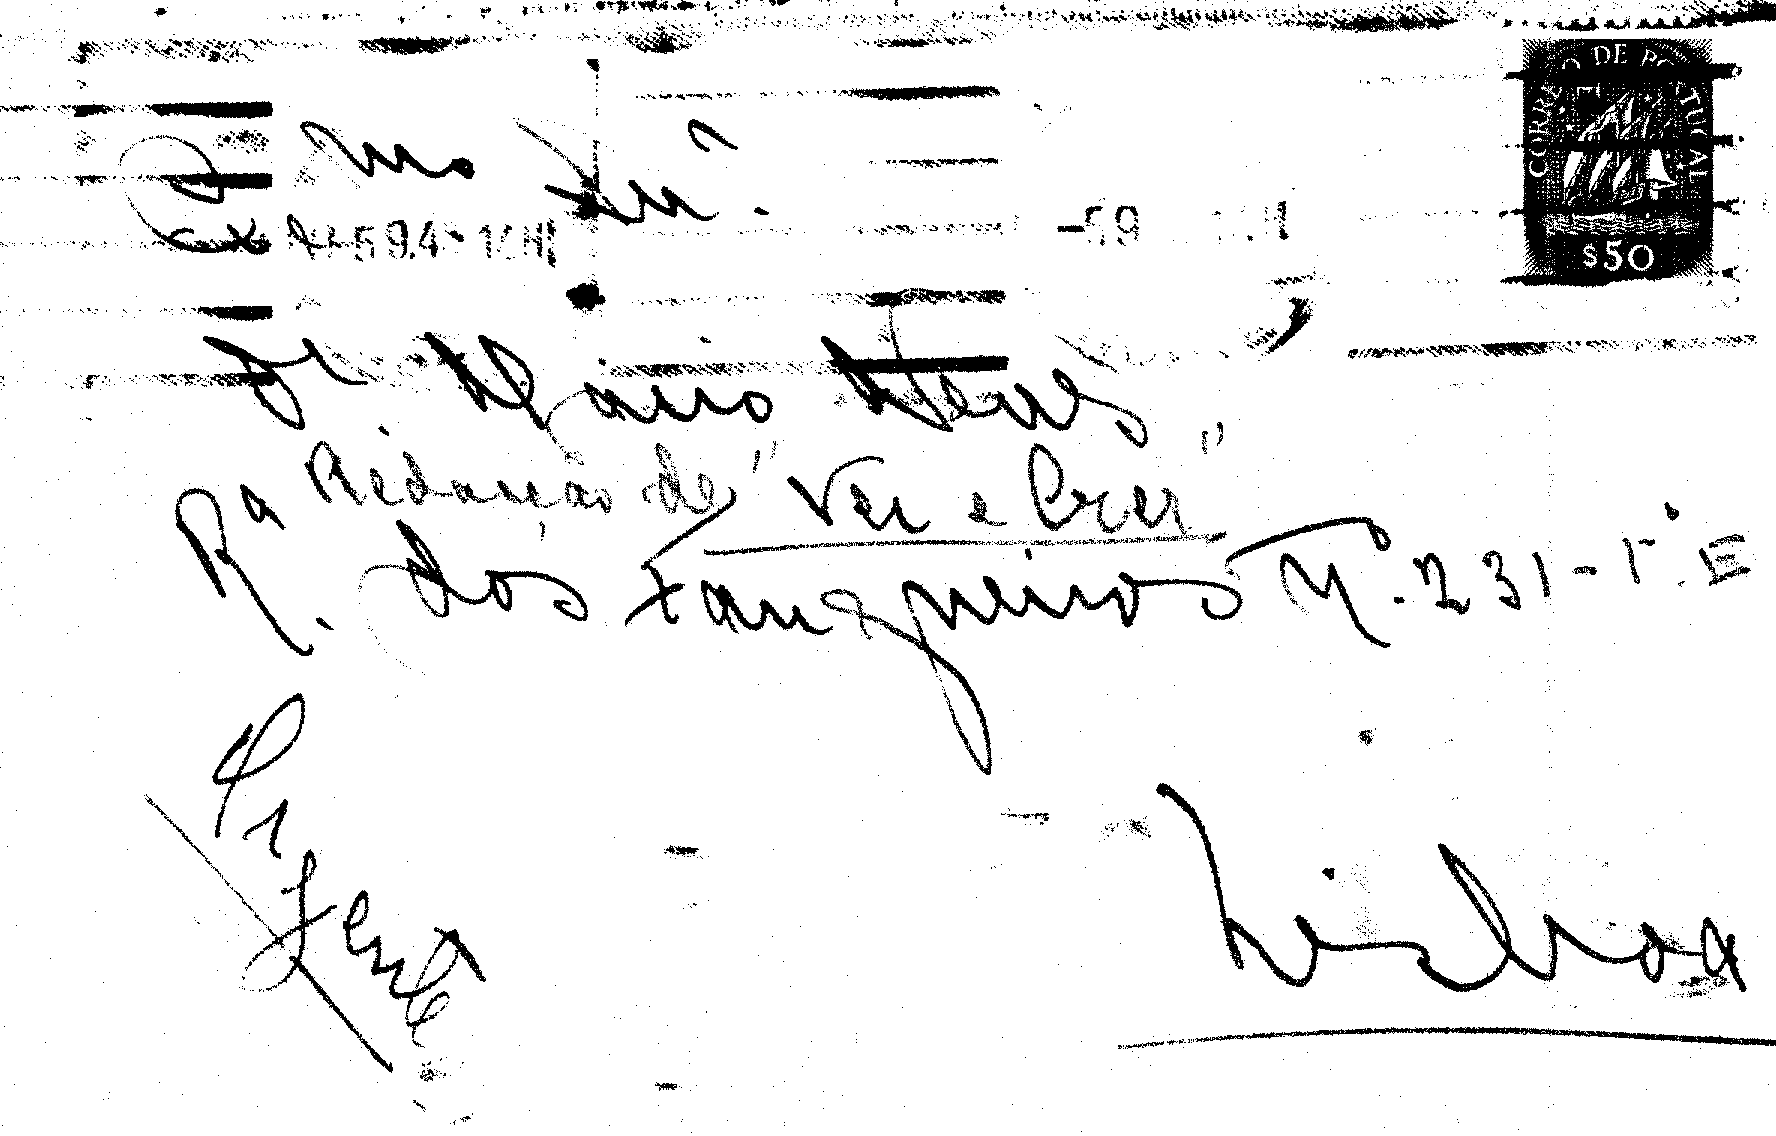 CORREIO DE PORTUGAL
$50
Ex.mo Snr.
Dr. Mário Neves
Redacção de "Ver e Crer"
Rª. dos Fanqueiros Nº. 231-1º. E
Urgente
Lisboa